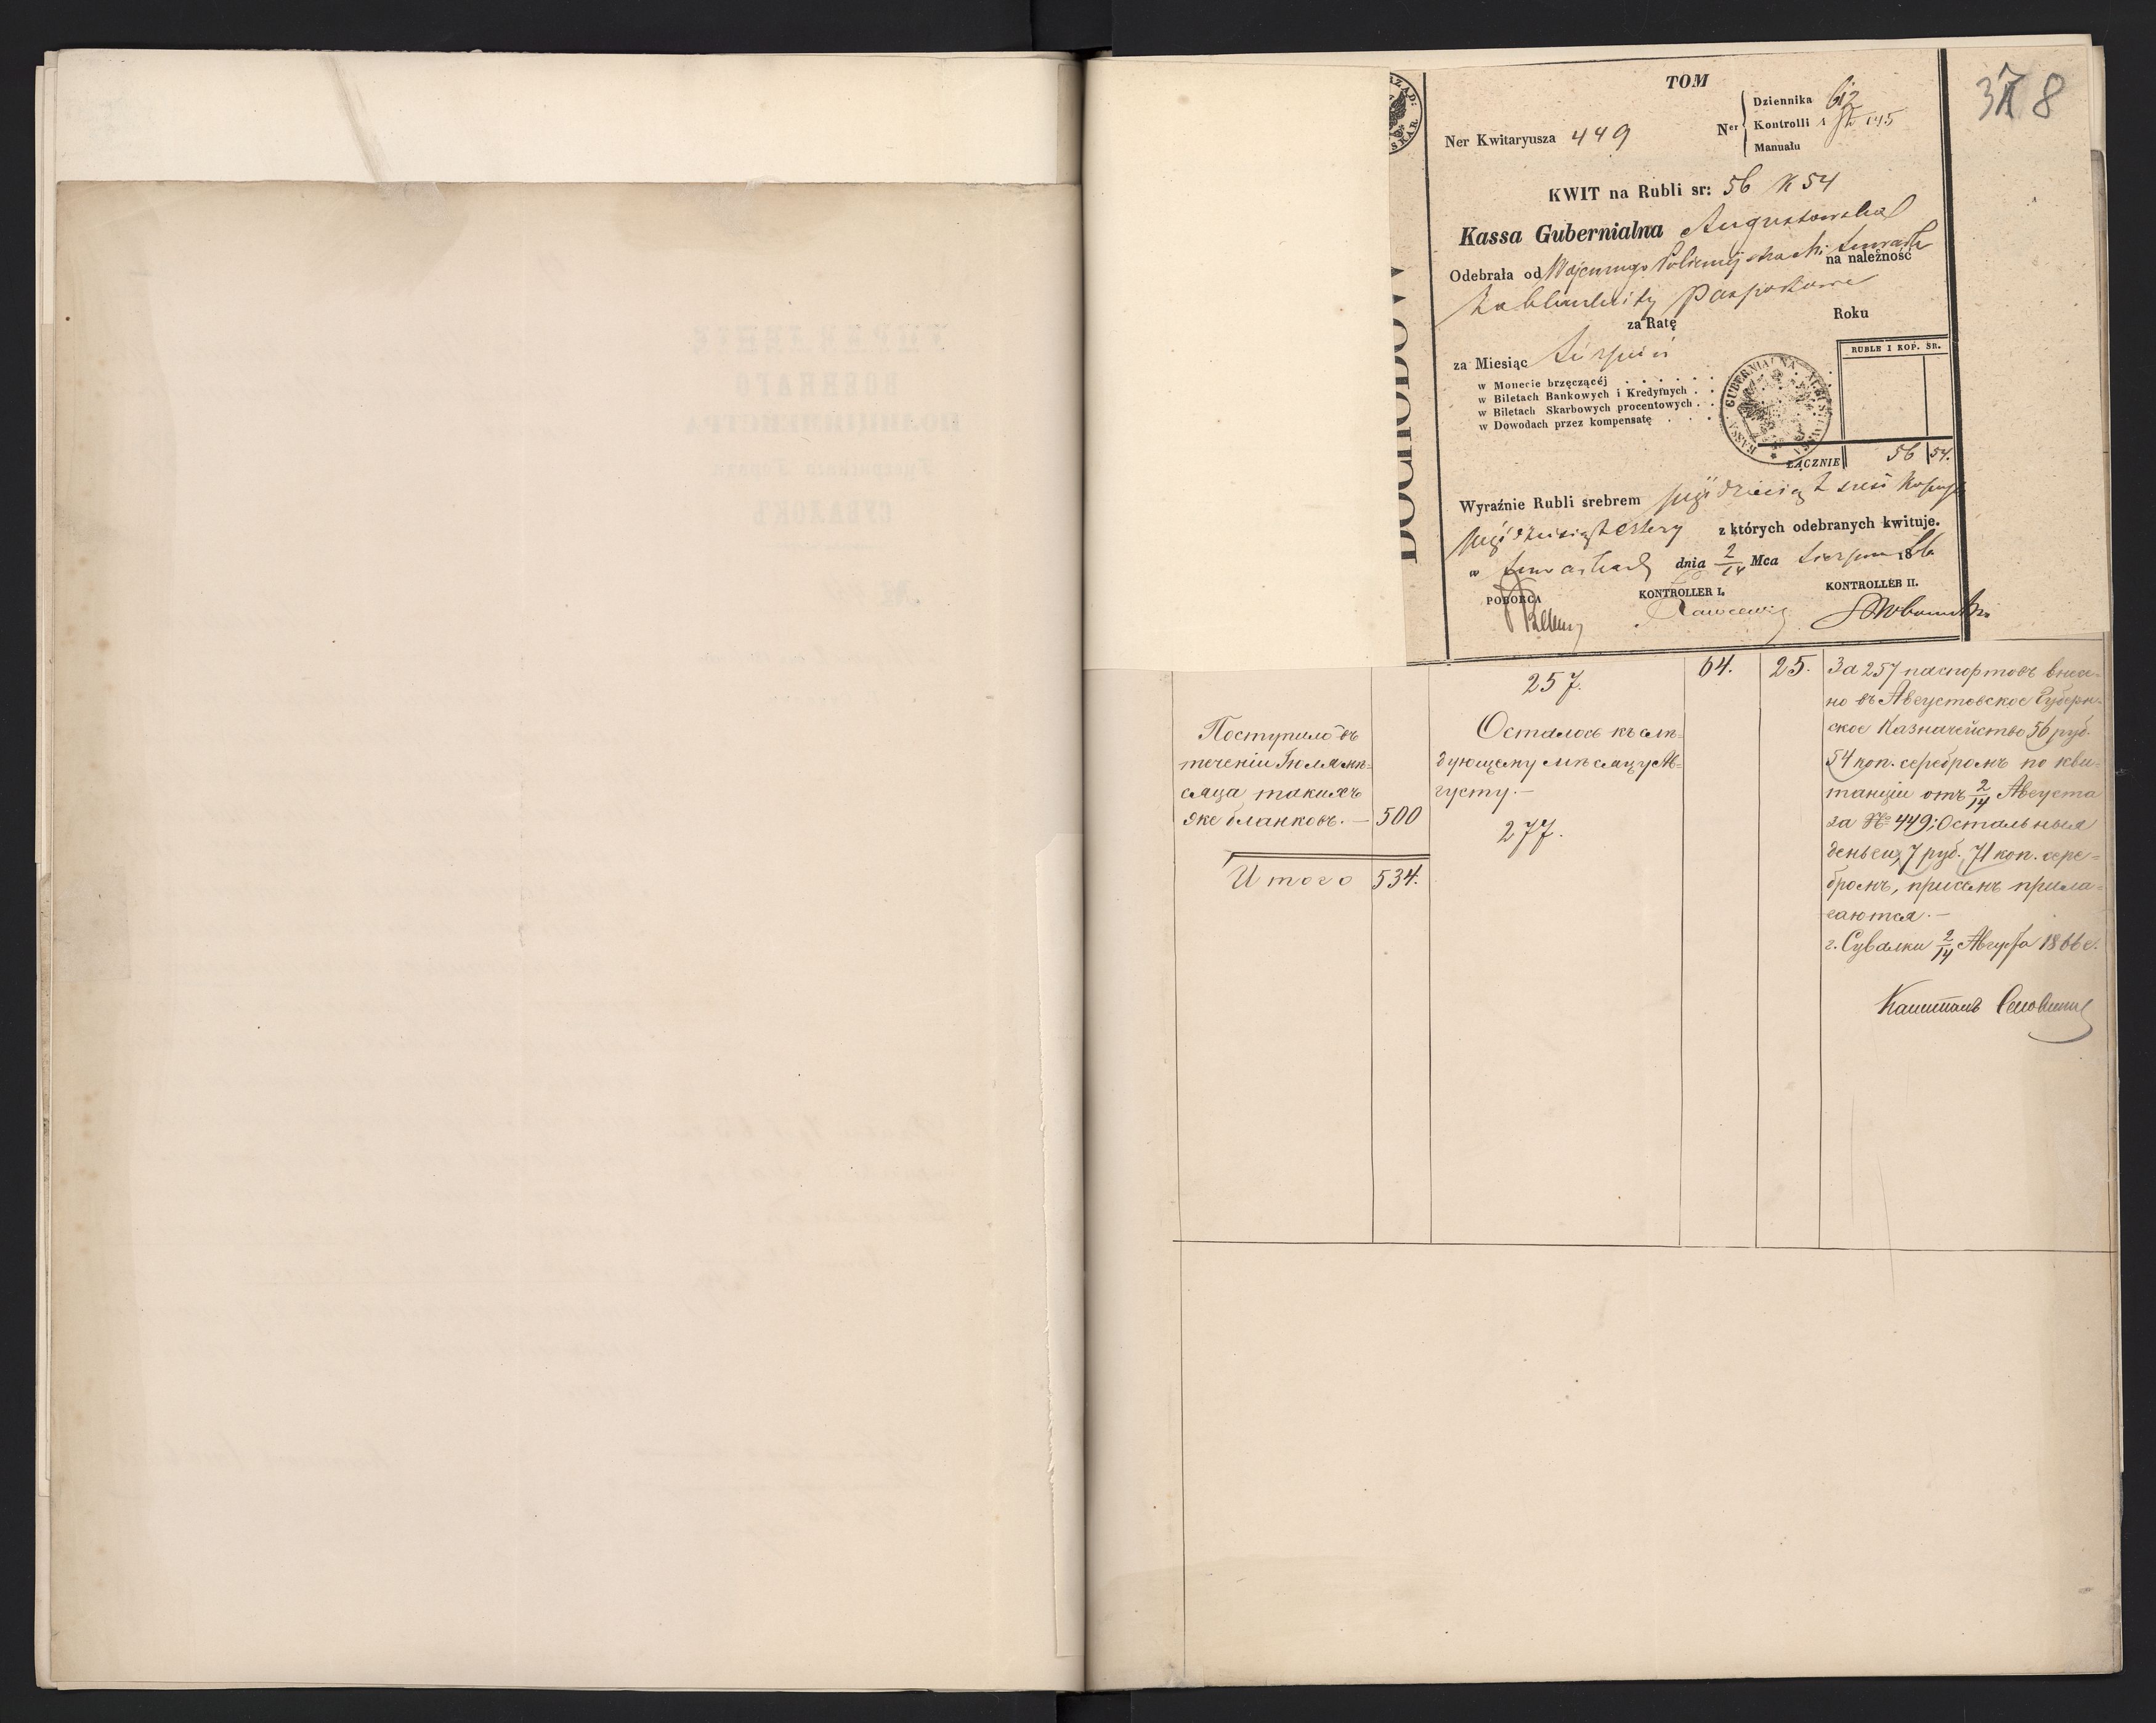 378
TOM
Ner Kwitaryusza 449
Ner
Dziennika 612
Kontrolli
Manuału
KWIT na Rubli sr: 56 K 54
Kassa Gubernialna Augustowska
Odebrała od Wojennego na należność
za blankiety Pasportowe
za Ratę Roku
za Miesiąc Sierpień
RUBLE I KOP. SR.
w Monecie brzęczącéj
w Biletach Bankowych i Kredytnych
w Biletach Skarbowych procentowych
w Dowodach przez kompensatę
KASSA GUBERNIALNA AUGUSTOWSKA
ŁĄCZNIE 56 54.
Wyraźnie Rubli srebrem pięćdziesiąt sześć Kopiejek
pięćdziesiąt cztery z których odebranych kwituje.
w Suwałkach dnia 2/14 Mca Sierpnia 1866
POBORCA KONTROLLER I. KONTROLLER II.
DOCHODÓW
257. 64. 25.
Поступило въ
теченіи Іюля мѣ=
сяца такихъ
же бланковъ. — 500
Итого 534.
Осталось къ слѣ=
дующему мѣсяцу Ав=
густу. —
277.
За 257 паспортовъ внесе=
но въ Августовское Губерн=
ское Казначейство 56 руб.
54 коп. серебромъ по кви=
танціи отъ 2/14 Августа
за № 449; Остальныя
деньги, 7 руб. 71 коп. сере=
бромъ, присемъ прила=
гаются. —
г. Сувалки 2/14 Августа 1866 г.
Капитанъ